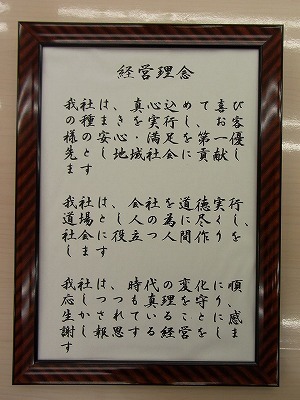 経営理念
我社は、真心込めて喜び
の種まきを実行し、お客
様の安心・満足を第一優
先とし地域社会に貢献し
ます
我社は、会社を道徳実行
道場とし人の為に尽くし、
社会に役立つ人間作りを
します
我社は、時代の変化に順
応しつつも真理を守り、
生かされていることに感
謝し報恩する経営をしま
す